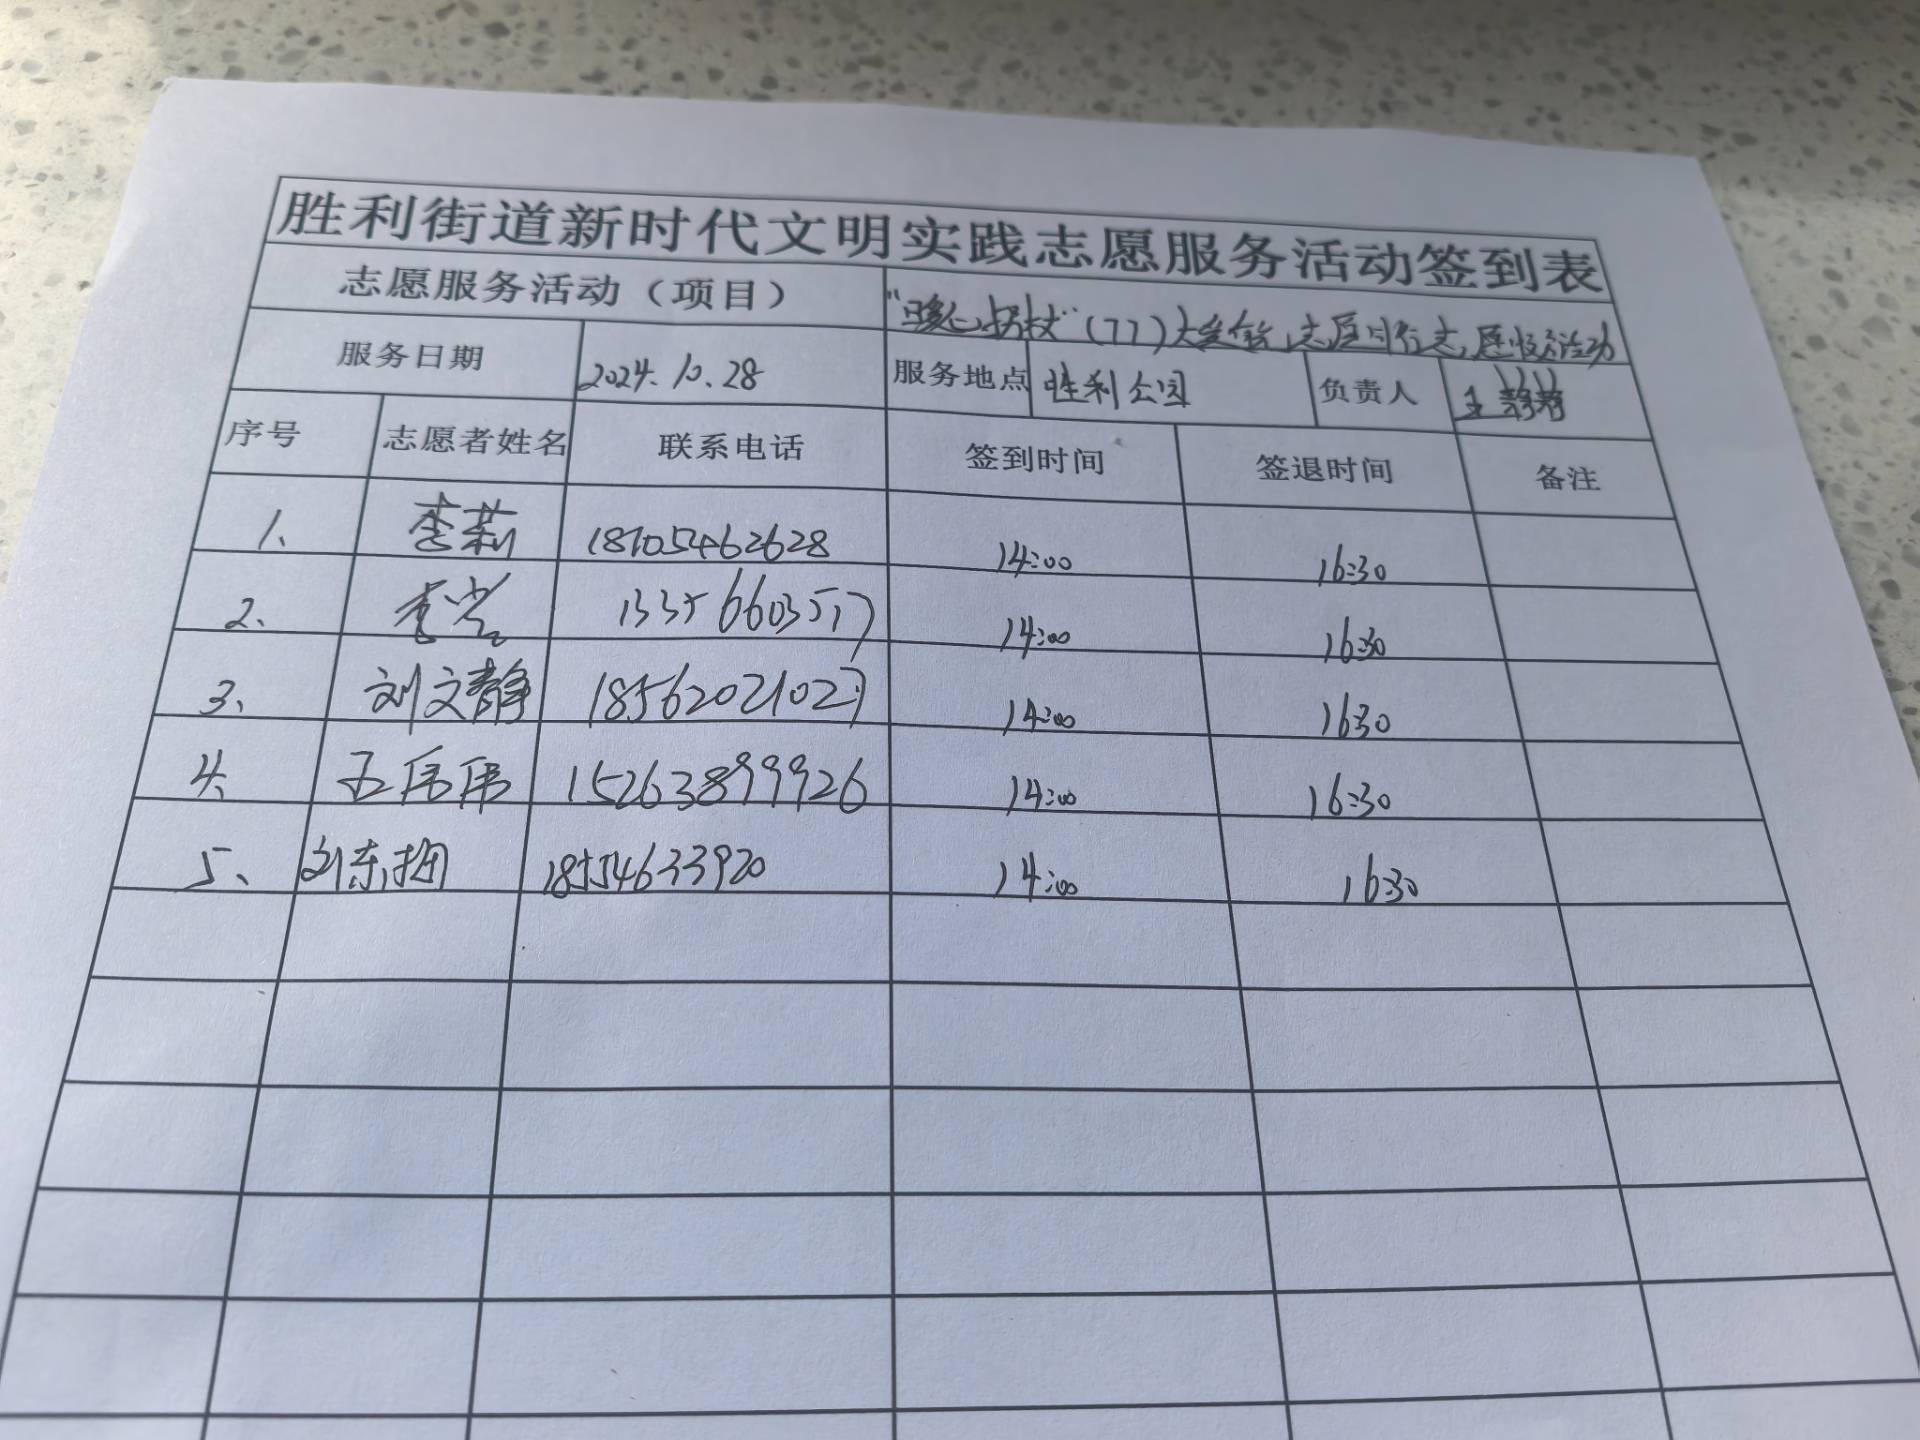 胜利街道新时代文明实践志愿服务活动签到表
志愿服务活动（项目） “暖心拐杖”（77）大爱金 志愿同行志愿服务活动
服务日期 2024.10.28 服务地点 胜利公园 负责人 王
序号 志愿者姓名 联系电话 签到时间 签退时间 备注
1、 李莉 18705462628 14:00 16:30
2、 李 13356603517 14:00 16:30
3、 刘文静 18562021027 14:00 16:30
4、 王伟伟 15263899926 14:00 16:30
5、 刘东 18554633920 14:00 16:30